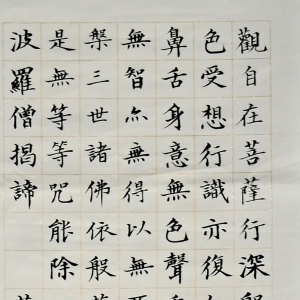 觀自在菩薩行深般
色受想行識亦復
鼻舌身意無色聲
無智亦無得以無
槃三世諸佛依般
是無等等咒能除
波羅僧揭諦